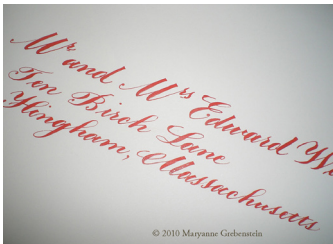 Mr and Mrs Edward
Ten Birch Lane
Hingham, Massachusetts
© 2010 Maryanne Grebenstein